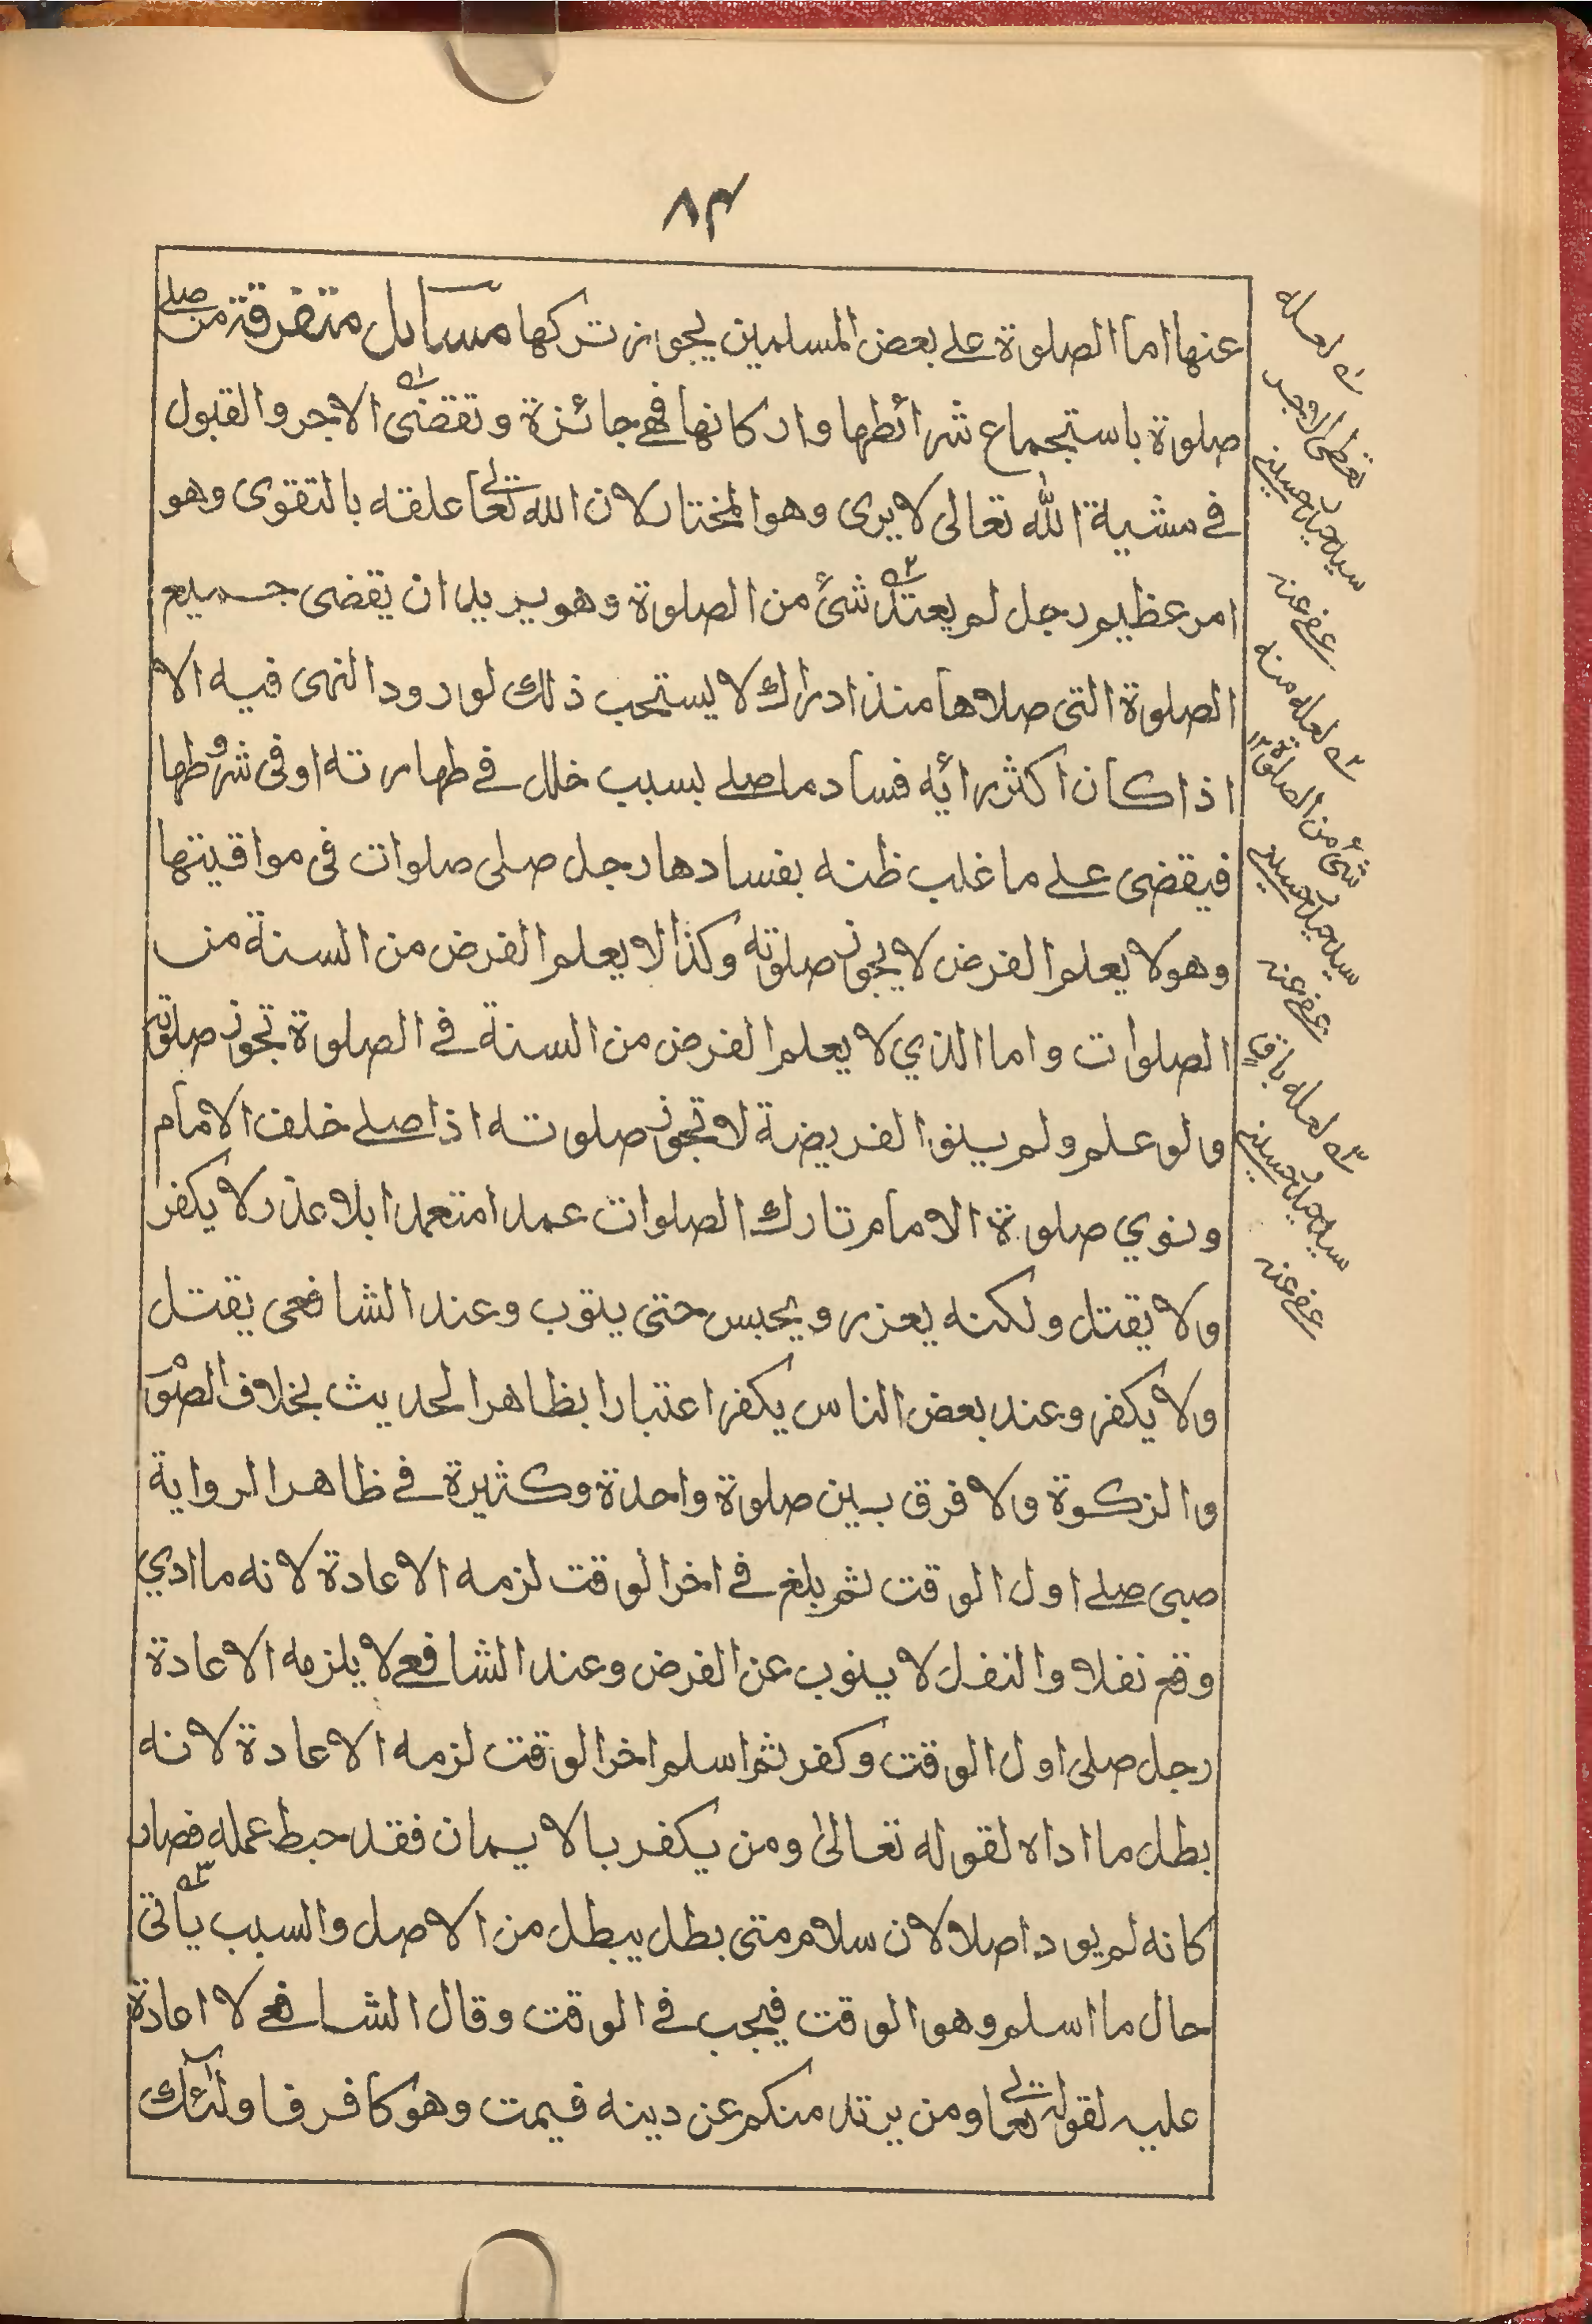 ٨٣
عنها اما الصلوة على بعض المسلمين يجوز تركها مسآئل متفرقة من صلے
صلوة باستجماع شرائطها واركانها فهي جائزة وتقضى الاجر والقبول
في مشية الله تعالى لا يرى وهو المختار لان الله تعالى علقه بالتقوى وهو
امر عظيم رجل لم يعتد شئ من الصلوة وهو يريد ان يقضى جميع
الصلوة التى صلاها منذ ادرك لا يستحب ذلك لورود النهى فيه الا
اذا كان اكثر رائه فساد ما صلے بسبب خلل في طهارته او فى شروطها
فيقضى على ما غلب ظنه بفسادها رجل صلى صلوات فى مواقيتها
وهو لا يعلم الفرض لا يجوز صلوته وكذا لا يعلم الفرض من السنة من
الصلوات واما الذي لا يعلم الفرض من السنة في الصلوة تجوز صلوته
ولو علم ولم ينو الفريضة لا تجوز صلوته اذا صلے خلف الامام
ونوي صلوة الامام تارك الصلوات عمدا متعمدا بلا عذر لا يكفر
ولا يقتل ولكنه يعزر ويحبس حتى يتوب وعند الشافعى يقتل
ولا يكفر وعند بعض الناس يكفر اعتبارا بظاهر الحديث بخلاف الصوم
والزكوة ولا فرق بين صلوة واحدة وكثيرة في ظاهر الرواية
صبى صلے اول الوقت ثم بلغ في اخر الوقت لزمه الاعادة لانه ما ادي
وقع نفلا والنفل لا ينوب عن الفرض وعند الشافعے لا يلزمه الاعادة
رجل صلى اول الوقت وكفر ثم اسلم اخر الوقت لزمه الاعادة لانه
بطل ما اداه لقوله تعالى ومن يكفر بالايمان فقد حبط عمله فصار
كانه لم يود اصلا لان سلام متى بطل يبطل من الاصل والسبب ياتى
حال ما اسلم وهو الوقت فيجب في الوقت وقال الشافعے لا اعادة
عليه لقوله تعالى ومن يرتد منكم عن دينه فيمت وهو كافر فاولئك
١ه لعله
تعطى الاجر
عفى عنه
٢ه لعله منه
شئ من الصلوة ١٢
عفى عنه
٣ه لعله باق
عفى عنه